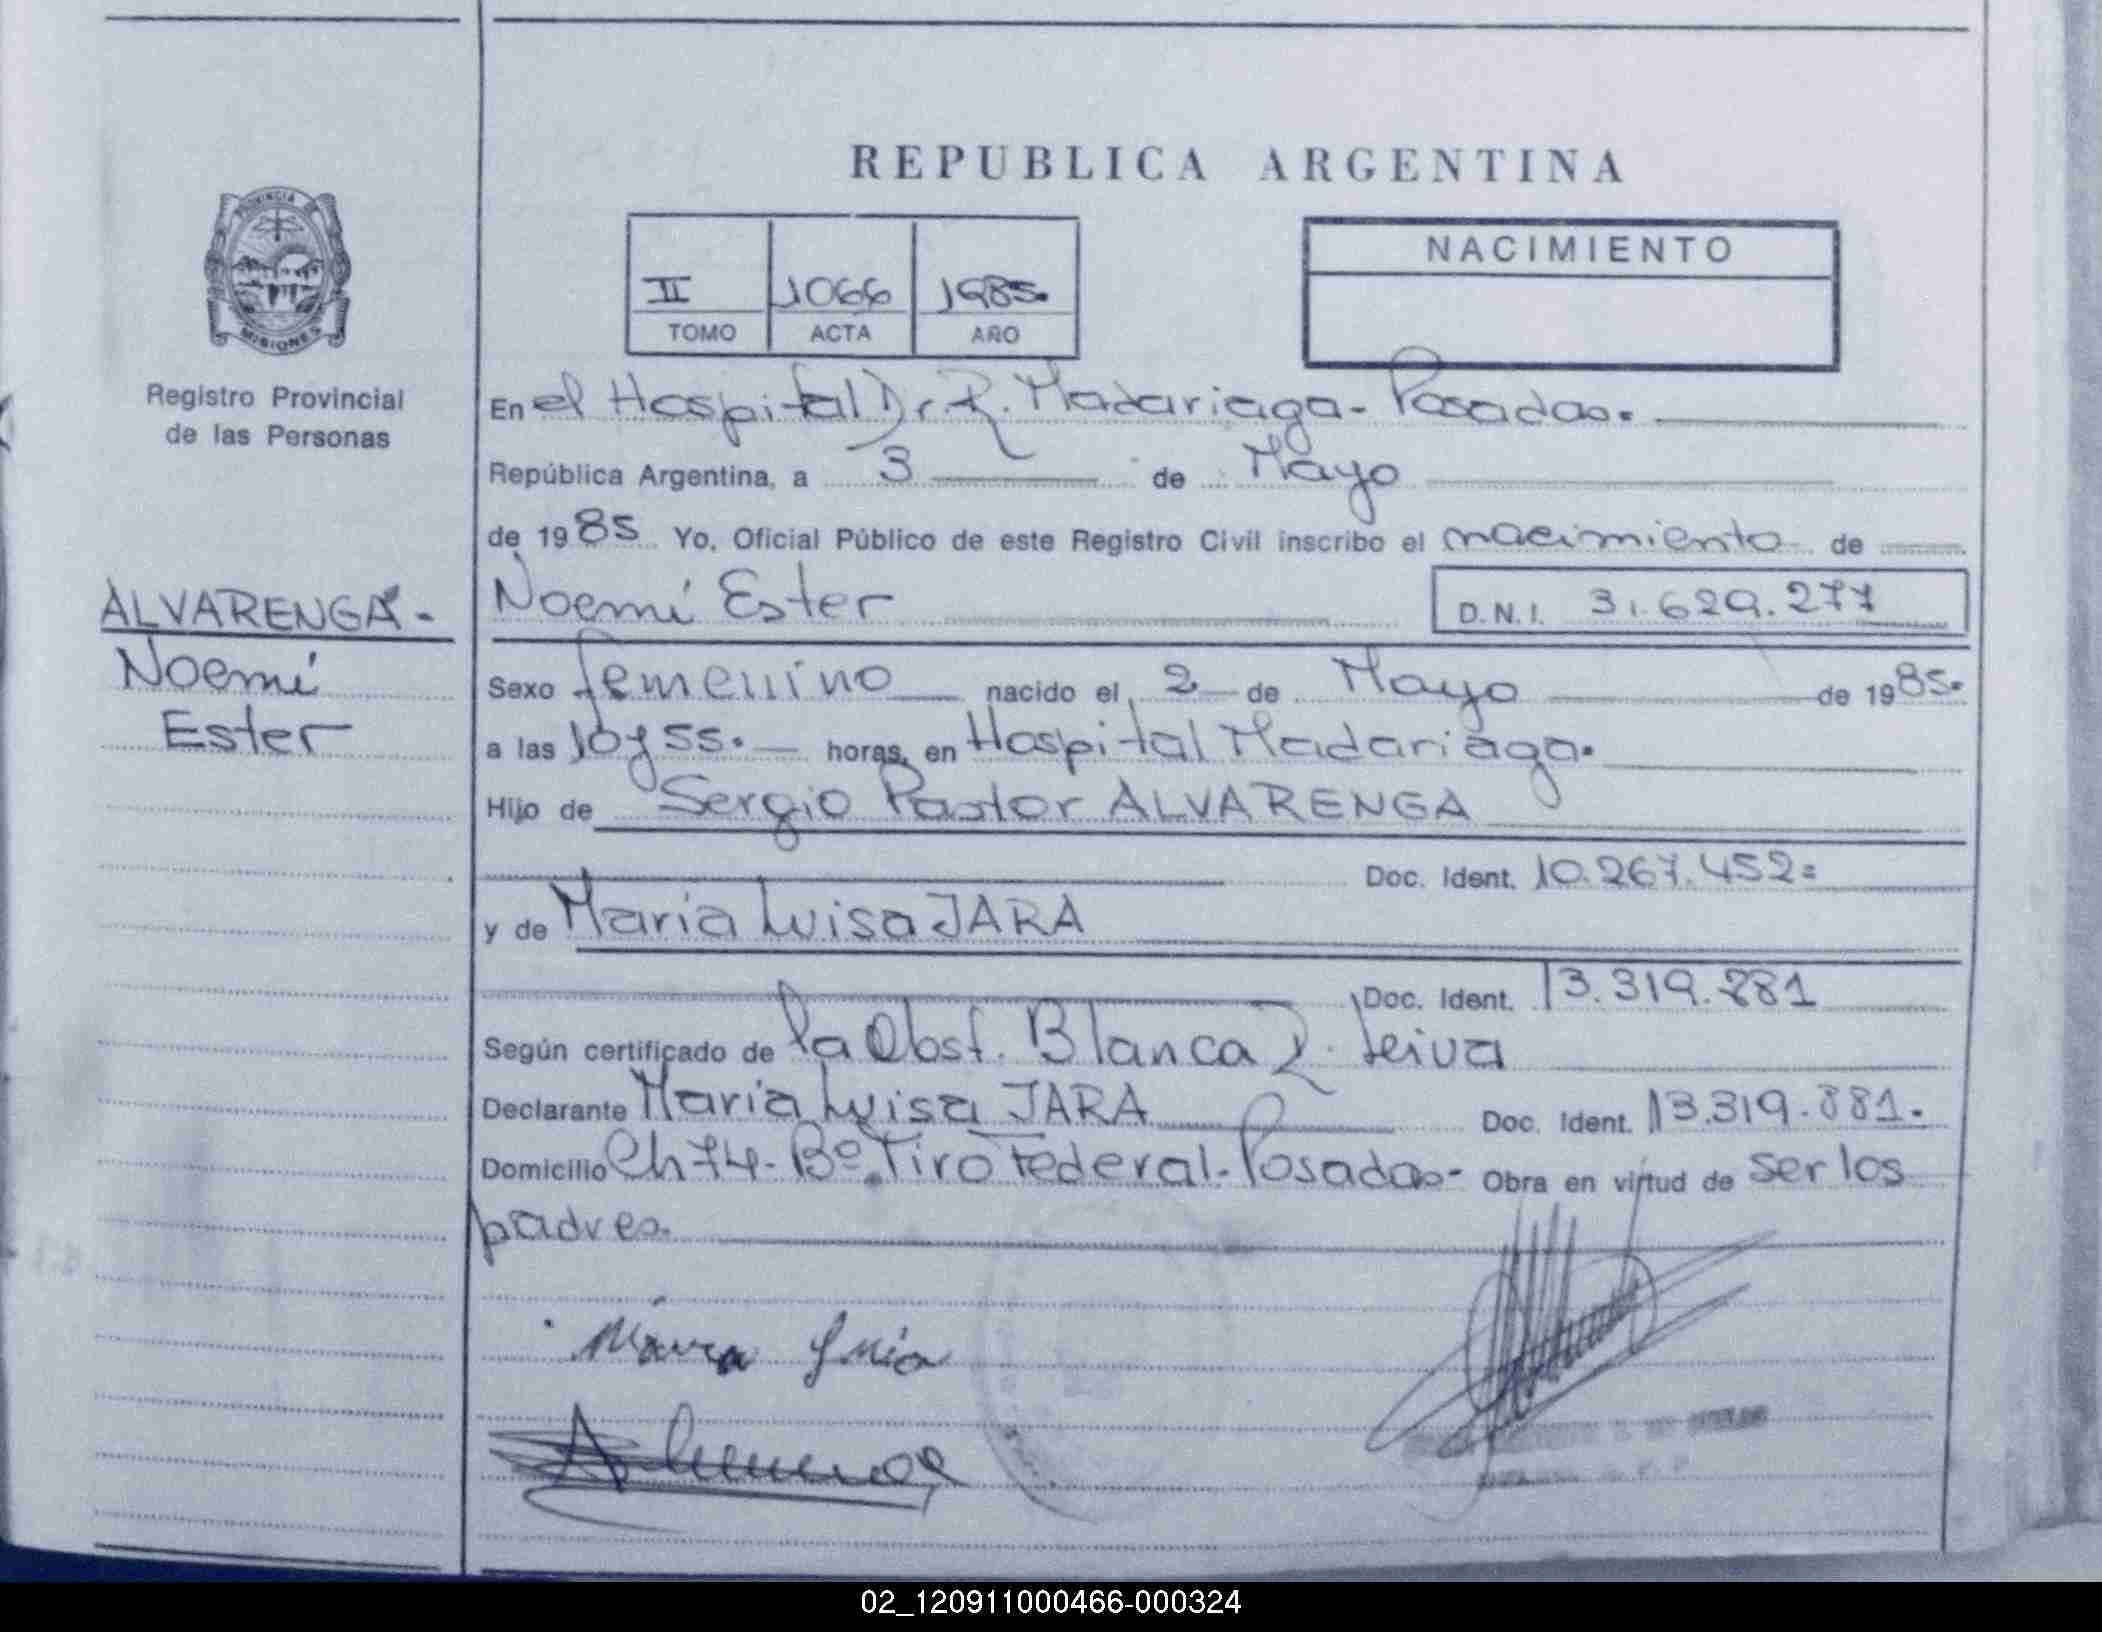 REPUBLICA ARGENTINA
PROVINCIA DE
MISIONES
Registro Provincial
de las Personas
II 1066 1985.
TOMO ACTA AÑO
NACIMIENTO
En el Hospital Dr. R. Madariaga - Posadas.
República Argentina, a 3 de Mayo
de 1985 Yo, Oficial Público de este Registro Civil inscribo el nacimiento de
ALVARENGA -
Noemí
Ester
Noemí Ester D.N.I. 31.629.277
Sexo femenino nacido el 2 de Mayo de 1985.
a las 10 y 55. horas, en Hospital Madariaga.
Hijo de Sergio Pastor ALVARENGA
Doc. Ident. 10.267.452=
y de María Luisa JARA
Doc. Ident. 13.319.881
Según certificado de la Obst. Blanca R. Leiva
Declarante María Luisa JARA Doc. Ident. 13.319.881.
Domicilio Ch 74 - Bº. Tiro Federal - Posadas - Obra en virtud de ser los
padres.
02_120911000466-000324